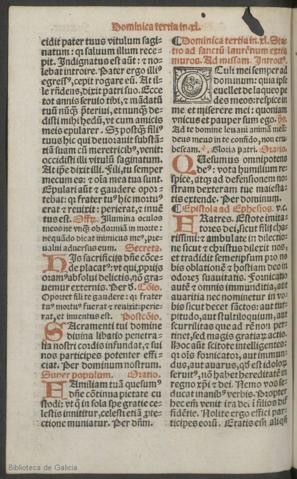 Dominica tertia in .xl.
cidit pater tuus vitulum sagi-
natum: qꝛ saluum illum rece-
pit. Indignatus est aūt: ⁊ no-
lebat introire. Pater ergo illiꝰ
egressꝰ, cepit rogare eū. At il-
le rn̄dens, dixit patri suo. Ecce
tot annis seruio tibi, ⁊ mādatū
tuū nūꝙ p̄teriui, et nunꝙ de-
disti mihi hedū, vt cum amicis
meis epularer. Sꝫ postꝙ filiꝰ
tuus hic qui deuorauit substā-
tiā suam cū meretricibꝰ, venit
occidisti illi vitulū saginatum.
At ip̄e dixit illi. Fili, tu semper
mecum es: ⁊ oīa mea tua sunt.
Epulari aūt ⁊ gaudere opor-
tebat: qꝛ frater tuꝰ hic mortuꝰ
erat ⁊ reuixit: perierat, ⁊ inuē
tus est. Offꝫ. Illumina oculos
meos ne vnꝙ obdormiā in morte:
nequādo dicat inimicus meꝰ, pre-
ualui aduersus eum. Secreta.
His sacrificijs dn̄e cōce-
de placatꝰ: vt qui ,ppriis
oramꝰ absolui delictis, nō gra-
uemur externis. Per dō. Cōio.
Oportet fili te gaudere: qꝛ frater
tuꝰ mortuꝰ fuerat ⁊ reuixit: perie-
rat, et inuentus est. Postcōio.
Sacramenti tui domine
diuina libatio penetra-
lia nostri cordis infundat, ⁊ sui
nos participes potenter effi-
ciat. Per dominum nostrum.
Super populum. Oratio.
Familiam tuā quesumꝰ
dn̄e cōtinua pietate cu-
stodi: vt ꝙ in sola spe gratie ce-
lestis innititur, celesti etiā ꝓte-
ctione muniatur. Per dn̄m.
Dominica tertia in .xl. Sta-
tio ad sanctū laurētium extra
muros. Ad missam. Introitꝰ.
Oculi mei semper ad
dominum: quia ipe
euellet de laqueo pe
des meos: respice in
me et miserere mei: quoniam
vnicus et pauper sum ego. ps.
Ad te domine leuaui animā meā:
deus meus in te confido, non eru-
bescam. Gloria patri. Oratio.
Quesumus omnipotens
deꝰ: vota humilium re-
spice, atqꝫ ad defensionem no-
stram dexteram tue maiesta-
tis extende. Per dominum.
Epistola ad Ephesios. v.c.
Fratres. Estote imita-
tores dei, sicut filij cha-
rissimi: ⁊ ambulate in dilectio-
ne sicut ⁊ christus dilexit nos,
et tradidit semetipsum pro no
bis oblationē ⁊ hostiam deo in
odorez suauitatis. Fornicatio
autē ⁊ omnis immunditia, aut
auaritia nec nominetur in vo-
bis sicut decet sāctos: aut tur-
pitudo, aut stultiloquium, aut
scurrilitas que ad rē non per-
tinet, sed magis gratiaꝝ actio.
Hoc aūt scitote intelligentes:
ꝙ oīs fornicator, aut immun-
dus, aut auarus, qd̓ est idoloꝝ
seruitus, nō habet hereditatē in
regno xp̄i ⁊ dei. Nemo vos se-
ducat inanibꝰ verbis. Propter
hec em̄ venit ira dei ī filios dif
fidētie. Nolite ergo effici parti-
cipes eorū. Eratis em̄ aliqn̄
Biblioteca de Galicia